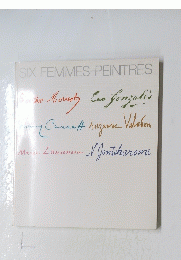 SIX FEMMES PEINTRES
Berthe Morisot Eva Gonzalès
Mary Cassatt Suzanne Valadon
Marie Laurencin N Gontcharova